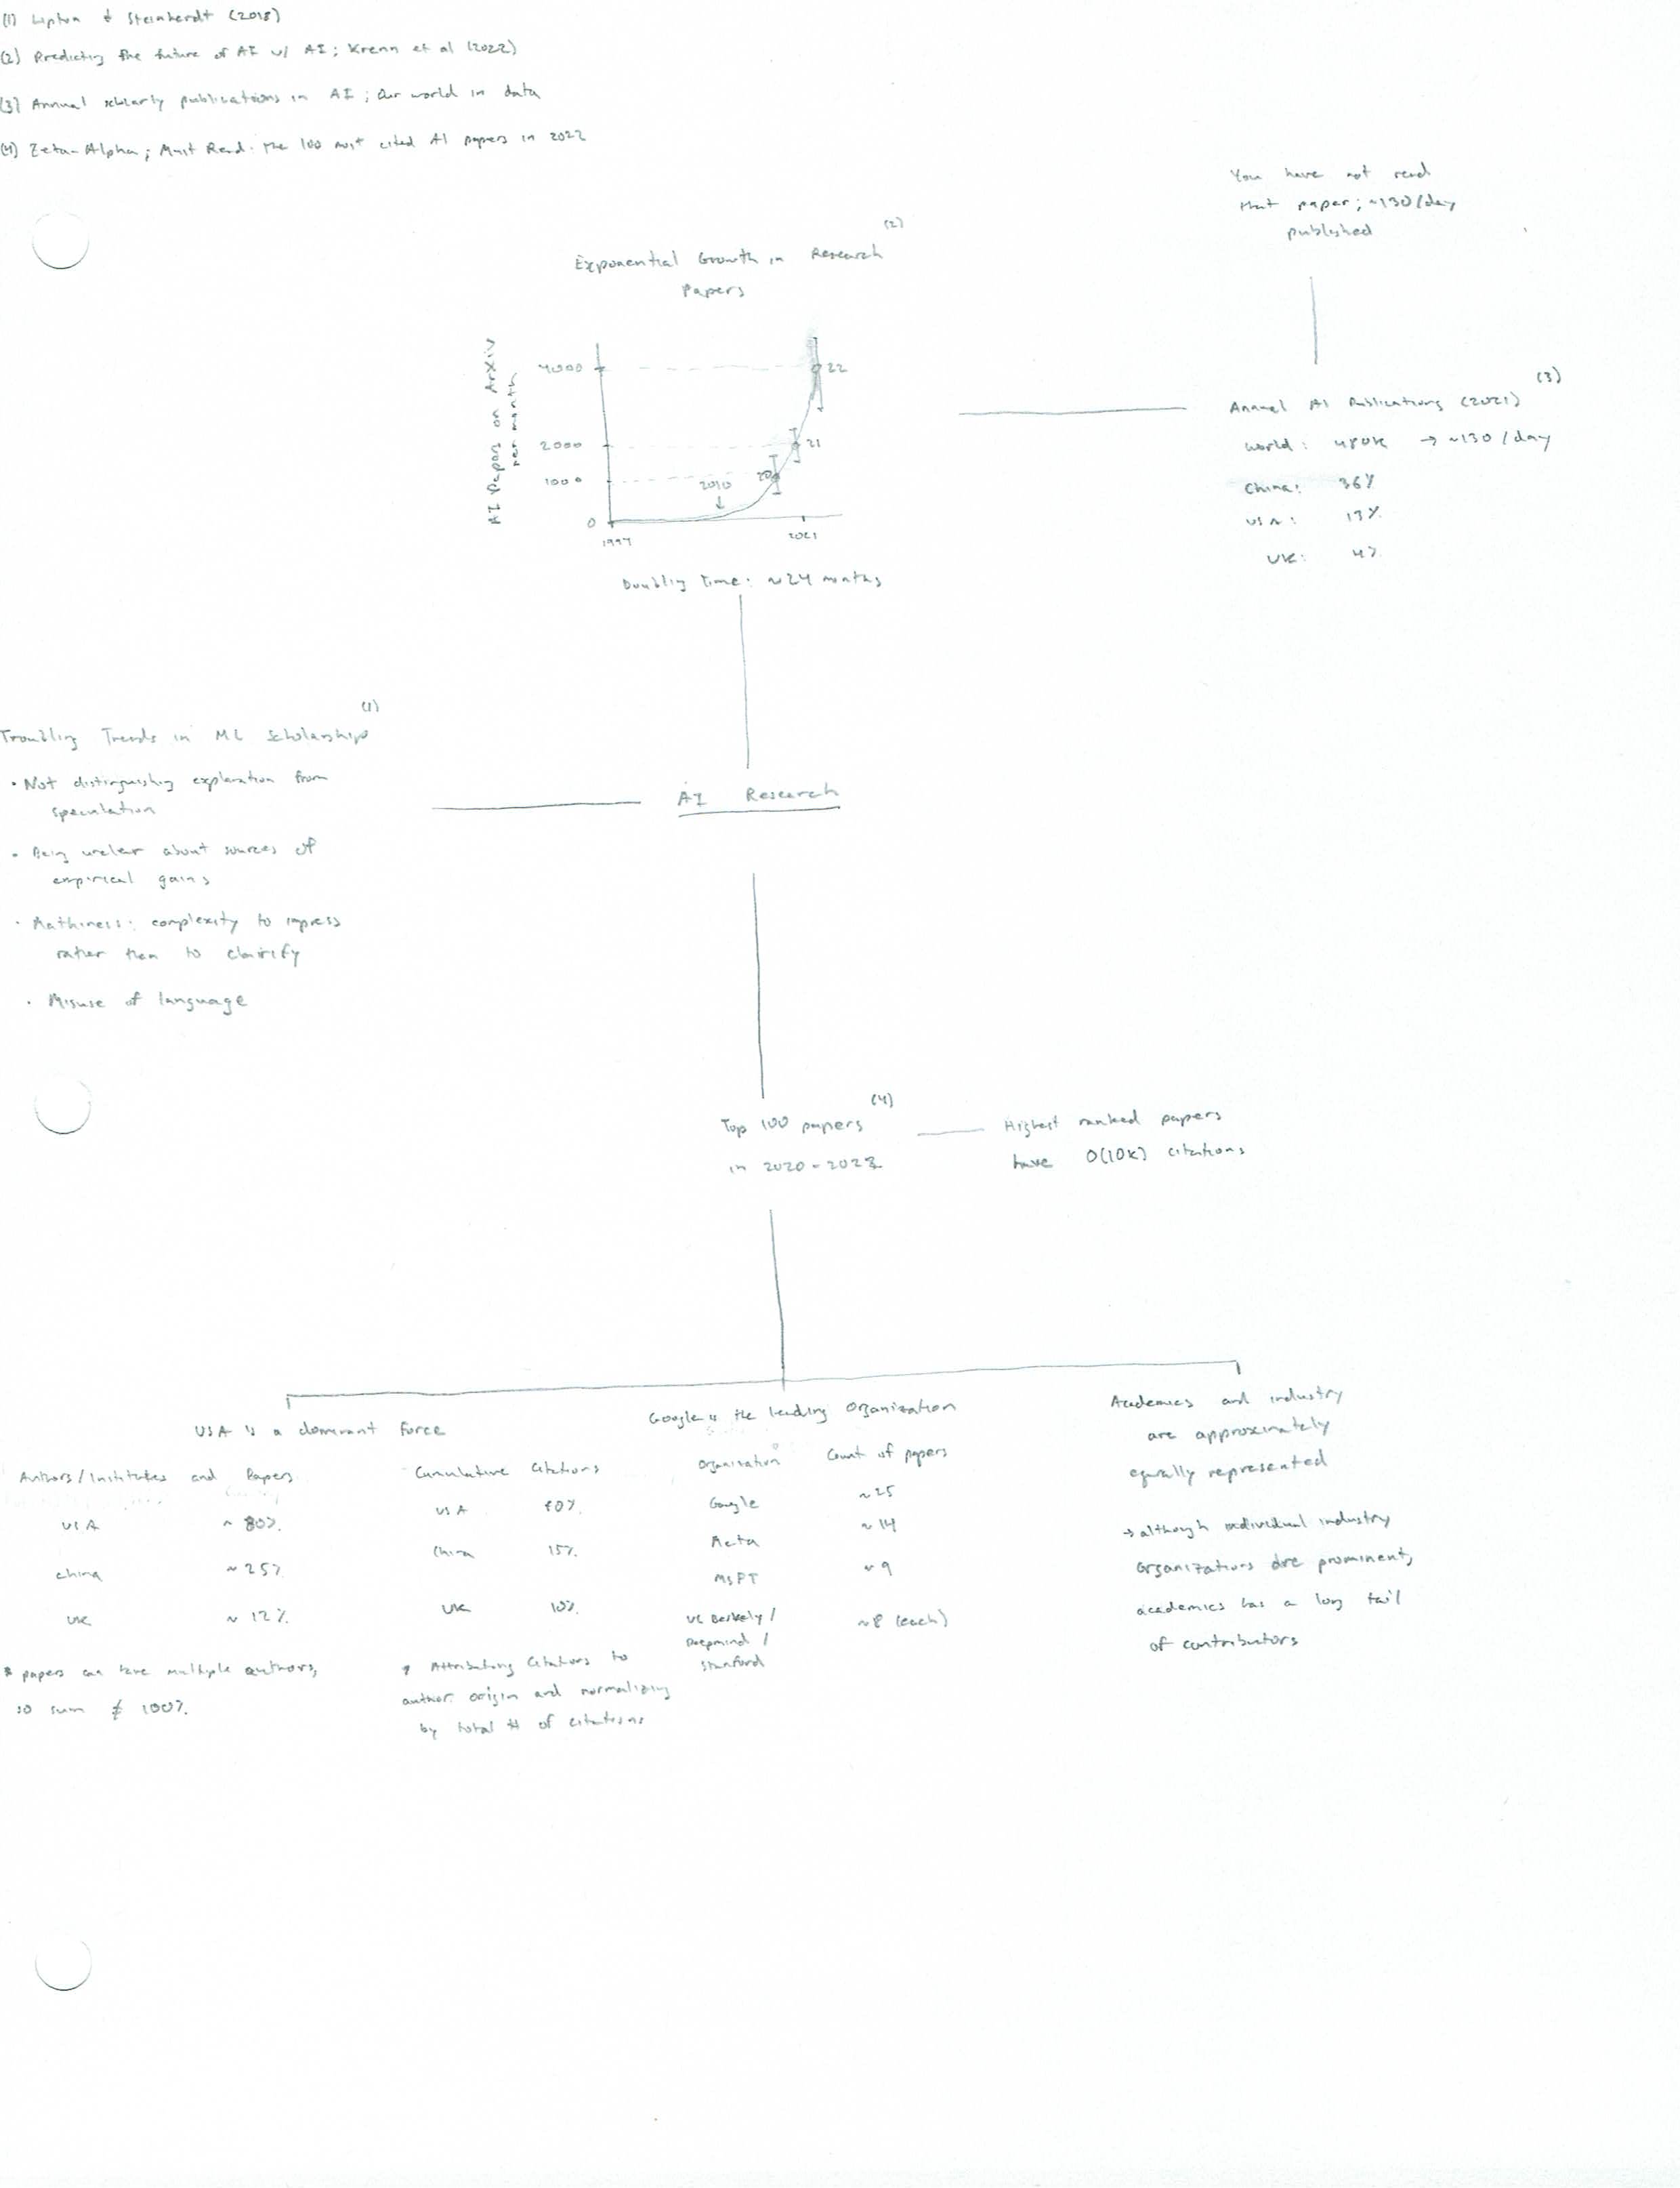 (1) Lipton & Steinhardt (2018)
(2) Predicting the future of AI w/ AI; Krenn et al (2022)
(3) Annual scholarly publications in AI; Our world in data
(4) Zeta-Alpha; Must Read: the 100 most cited AI papers in 2022
You have not read
that paper; ~130/day
published
(2)
Exponential Growth in Research
Papers
AI Papers on ArXiv
per month
4000
2000
1000
0
2010
20
21
22
2021
Doubling time: ~24 months
(3)
Annual AI Publications (2021)
World: 480K → ~130/day
China: 36%
USA: 13%
UK: 4%
(1)
Troubling Trends in ML Scholarship
• Not distinguishing explanation from
speculation
• Being unclear about sources of
empirical gains
• Mathiness: complexity to impress
rather than to clairify
• Misuse of language
AI Research
(4)
Top 100 papers
in 2020-2022
Highest ranked papers
have O(10K) citations
USA is a dominant force
Authors/Institutes and Papers
USA ~ 80%
China ~ 25%
UK ~ 12%
* papers can have multiple authors,
so sum ≠ 100%
Cumulative Citations
USA
China 15%
UK 10%
Attributing Citations to
author origin and normalizing
by total # of citations
Google is the leading Organization
Organization Count of papers
Google ~25
Meta ~14
MSFT ~9
UC Berkely / ~8 (each)
Deepmind /
Stanford
Academics and industry
are approximately
equally represented
→ although individual industry
Organizations are prominent,
academics has a long tail
of contributors